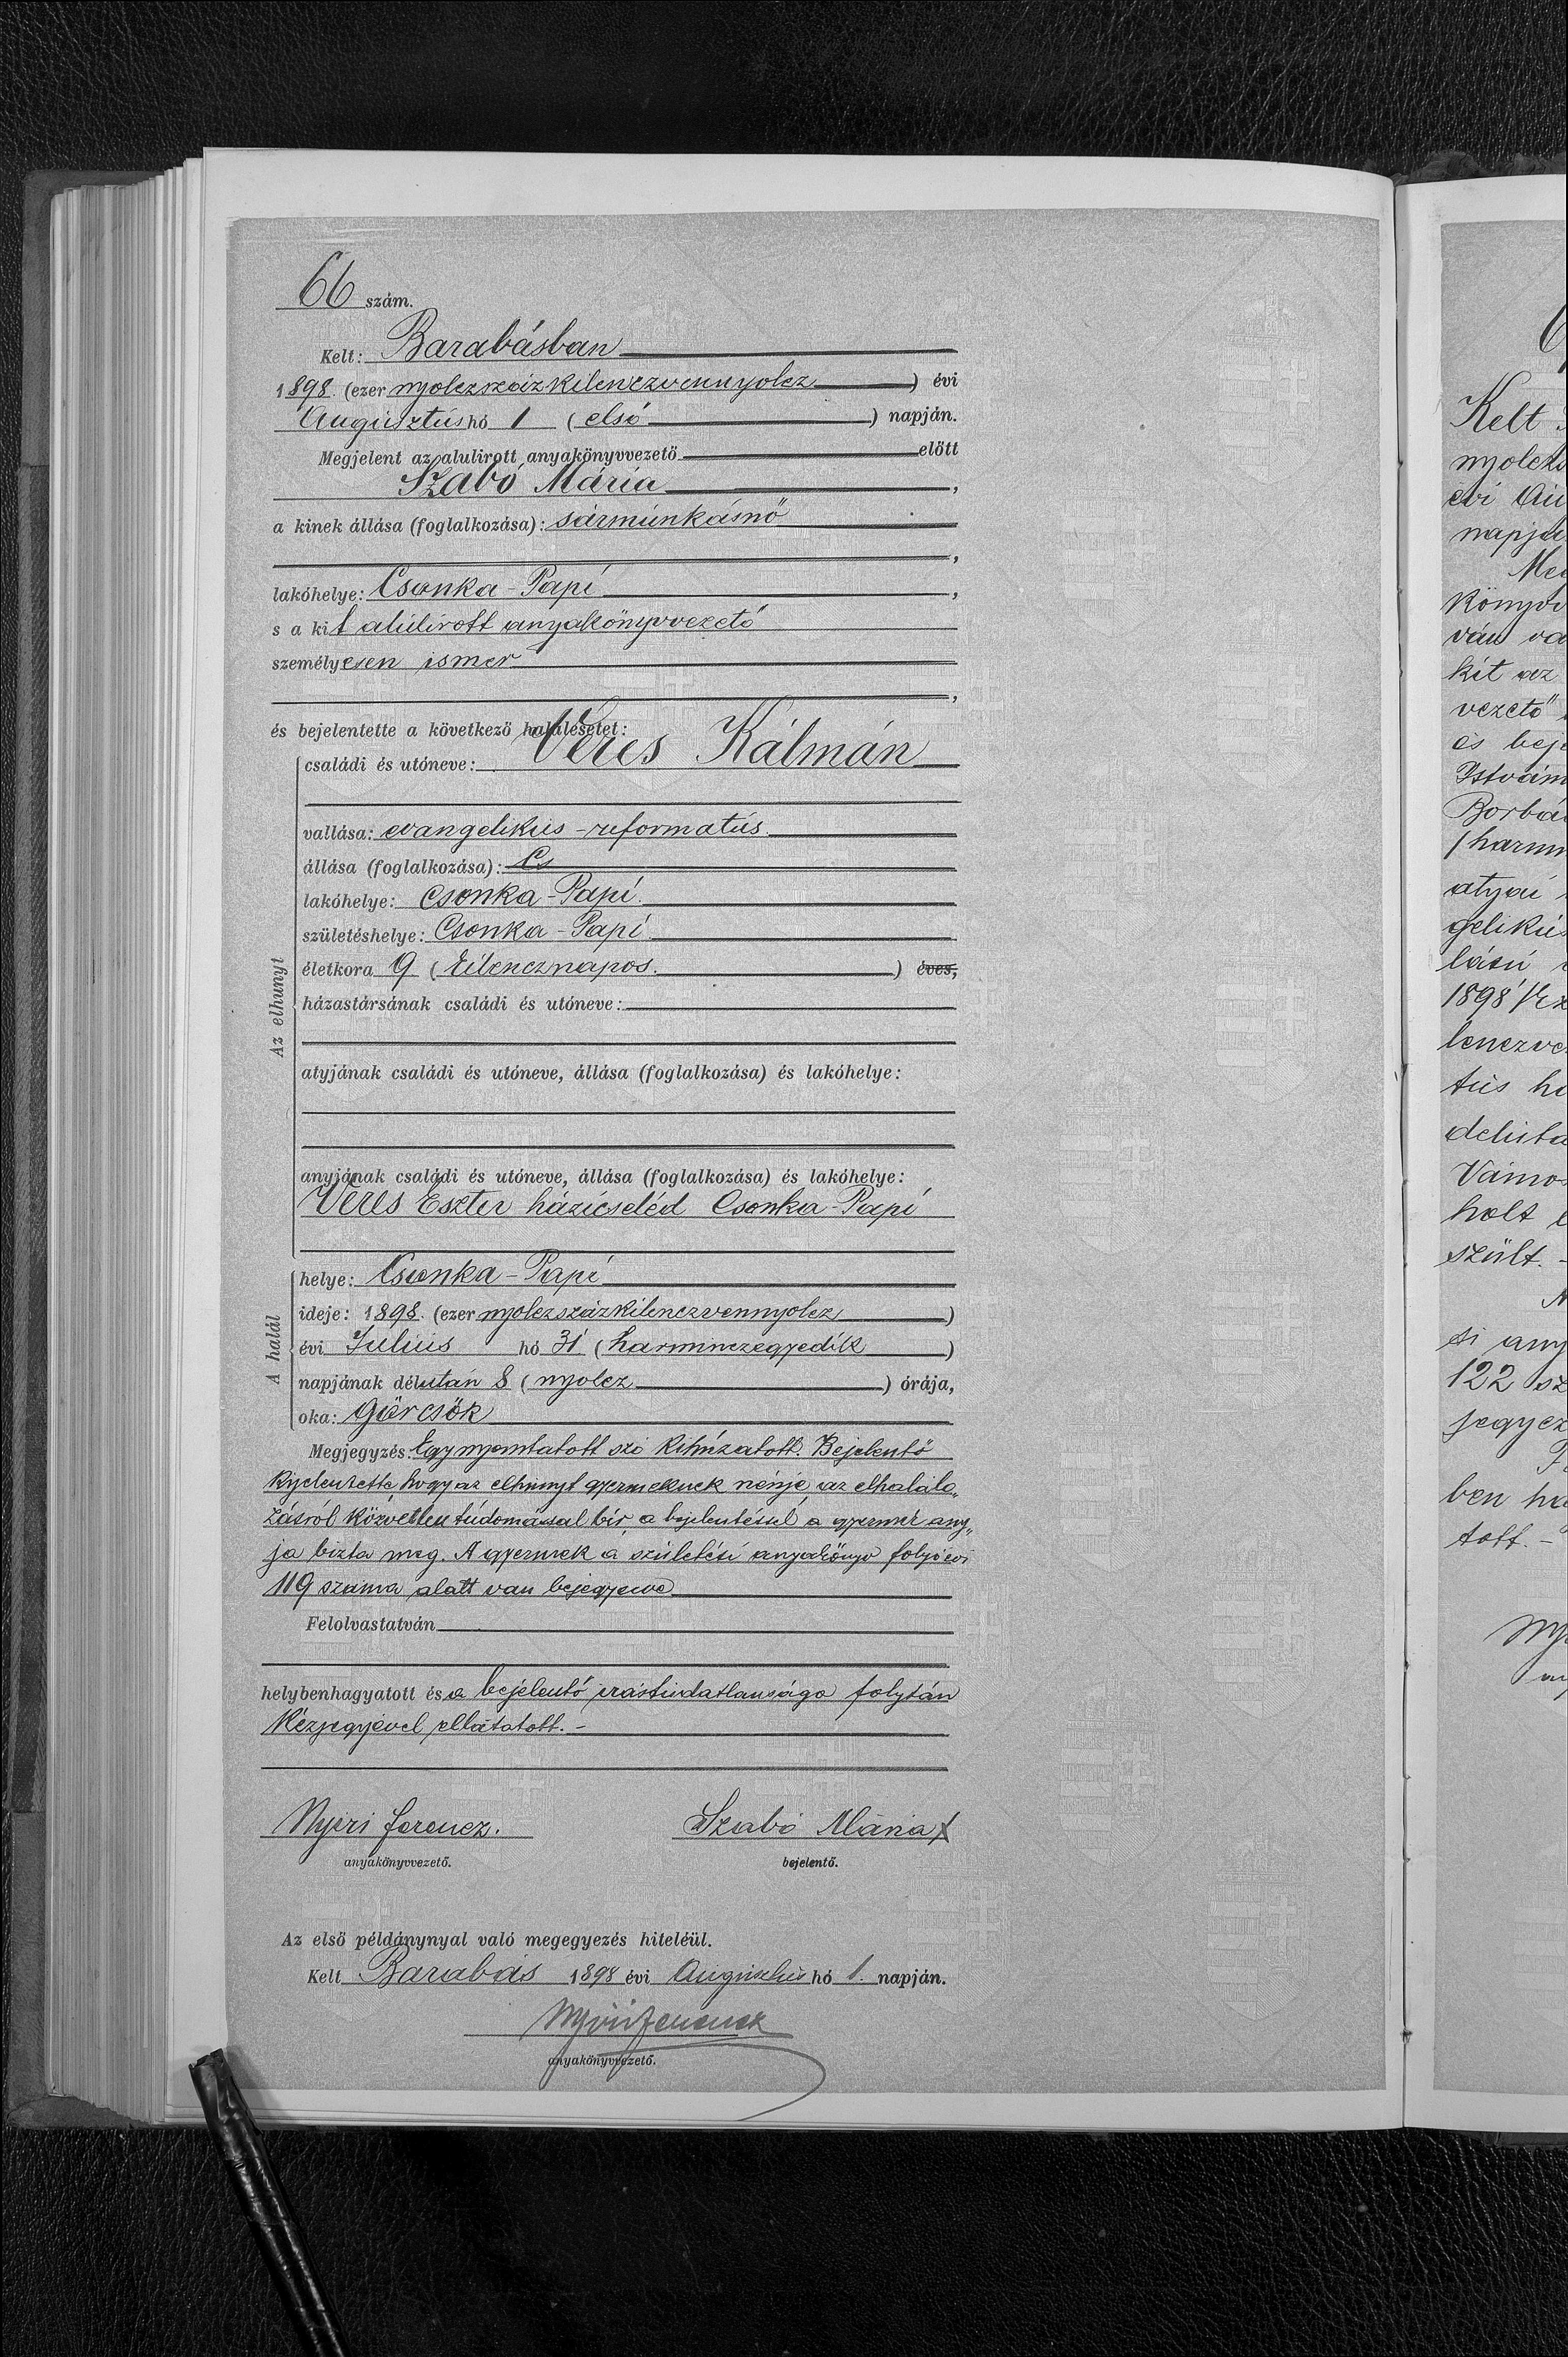 66 szám.
Kelt: Barabásban
1898. (ezer nyolczszázkilenczvennyolcz) évi
Augusztus hó 1 (első) napján.
Megjelent az alulirott anyakönyvvezető előtt
Szabó Mária,
a kinek állása (foglalkozása): sármunkásnő
,
lakóhelye: Csonka-Papi,
s a kit alúlirott anyakönyvvezető
személyesen ismer
,
és bejelentette a következő halálesetet:
családi és utóneve: Veres Kálmán
vallása: evangelikus-reformatus
állása (foglalkozása):
lakóhelye: Csonka-Papi
születéshelye: Csonka-Papi
életkora 9 (kilencznapos.) éves,
házastársának családi és utóneve:
atyjának családi és utóneve, állása (foglalkozása) és lakóhelye:
anyjának családi és utóneve, állása (foglalkozása) és lakóhelye:
Veres Eszter házicseléd Csonka-Papi
Az elhunyt
helye: Csonka-Papi
ideje: 1898. (ezer nyolczszázkilenczvennyolcz)
évi Julius hó 31 (harminczegyedik)
napjának délután 8 (nyolcz) órája,
oka: Görcsök
A halál
Megjegyzés: Egy nyomtatott szó kihúzatott. Bejelentő
kijelentette hogy az elhunyt gyermeknek nénje az elhalálo„
zásról közvetlen tudomással bír, a bejelentéssel a gyermek any„
ja bizta meg. A gyermek a születési anyakönyv folyó évi
119 száma alatt van bejegyezve
Felolvastatván
helybenhagyatott és a bejelentő irástudatlansága folytán
kézjegyével ellátatott.-
Nyiri Ferencz. Szabó Mária X
anyakönyvvezető. bejelentő.
Az első példánynyal való megegyezés hiteléül.
Kelt Barabás 1898 évi Augusztus hó 1. napján.
Nyiri Ferencz
anyakönyvvezető.
Kelt
nyolczs
évi Au
napjá
Me
könyvv
ván va
kit az
vezető
és beje
István
Borbá
(harm
atyai
gelikus
lású
1898 (ez
lenczve
tus hó
délutá
Vámos
holt
szült. -
si any
122 sz
jegyez
ben ha
tott. -